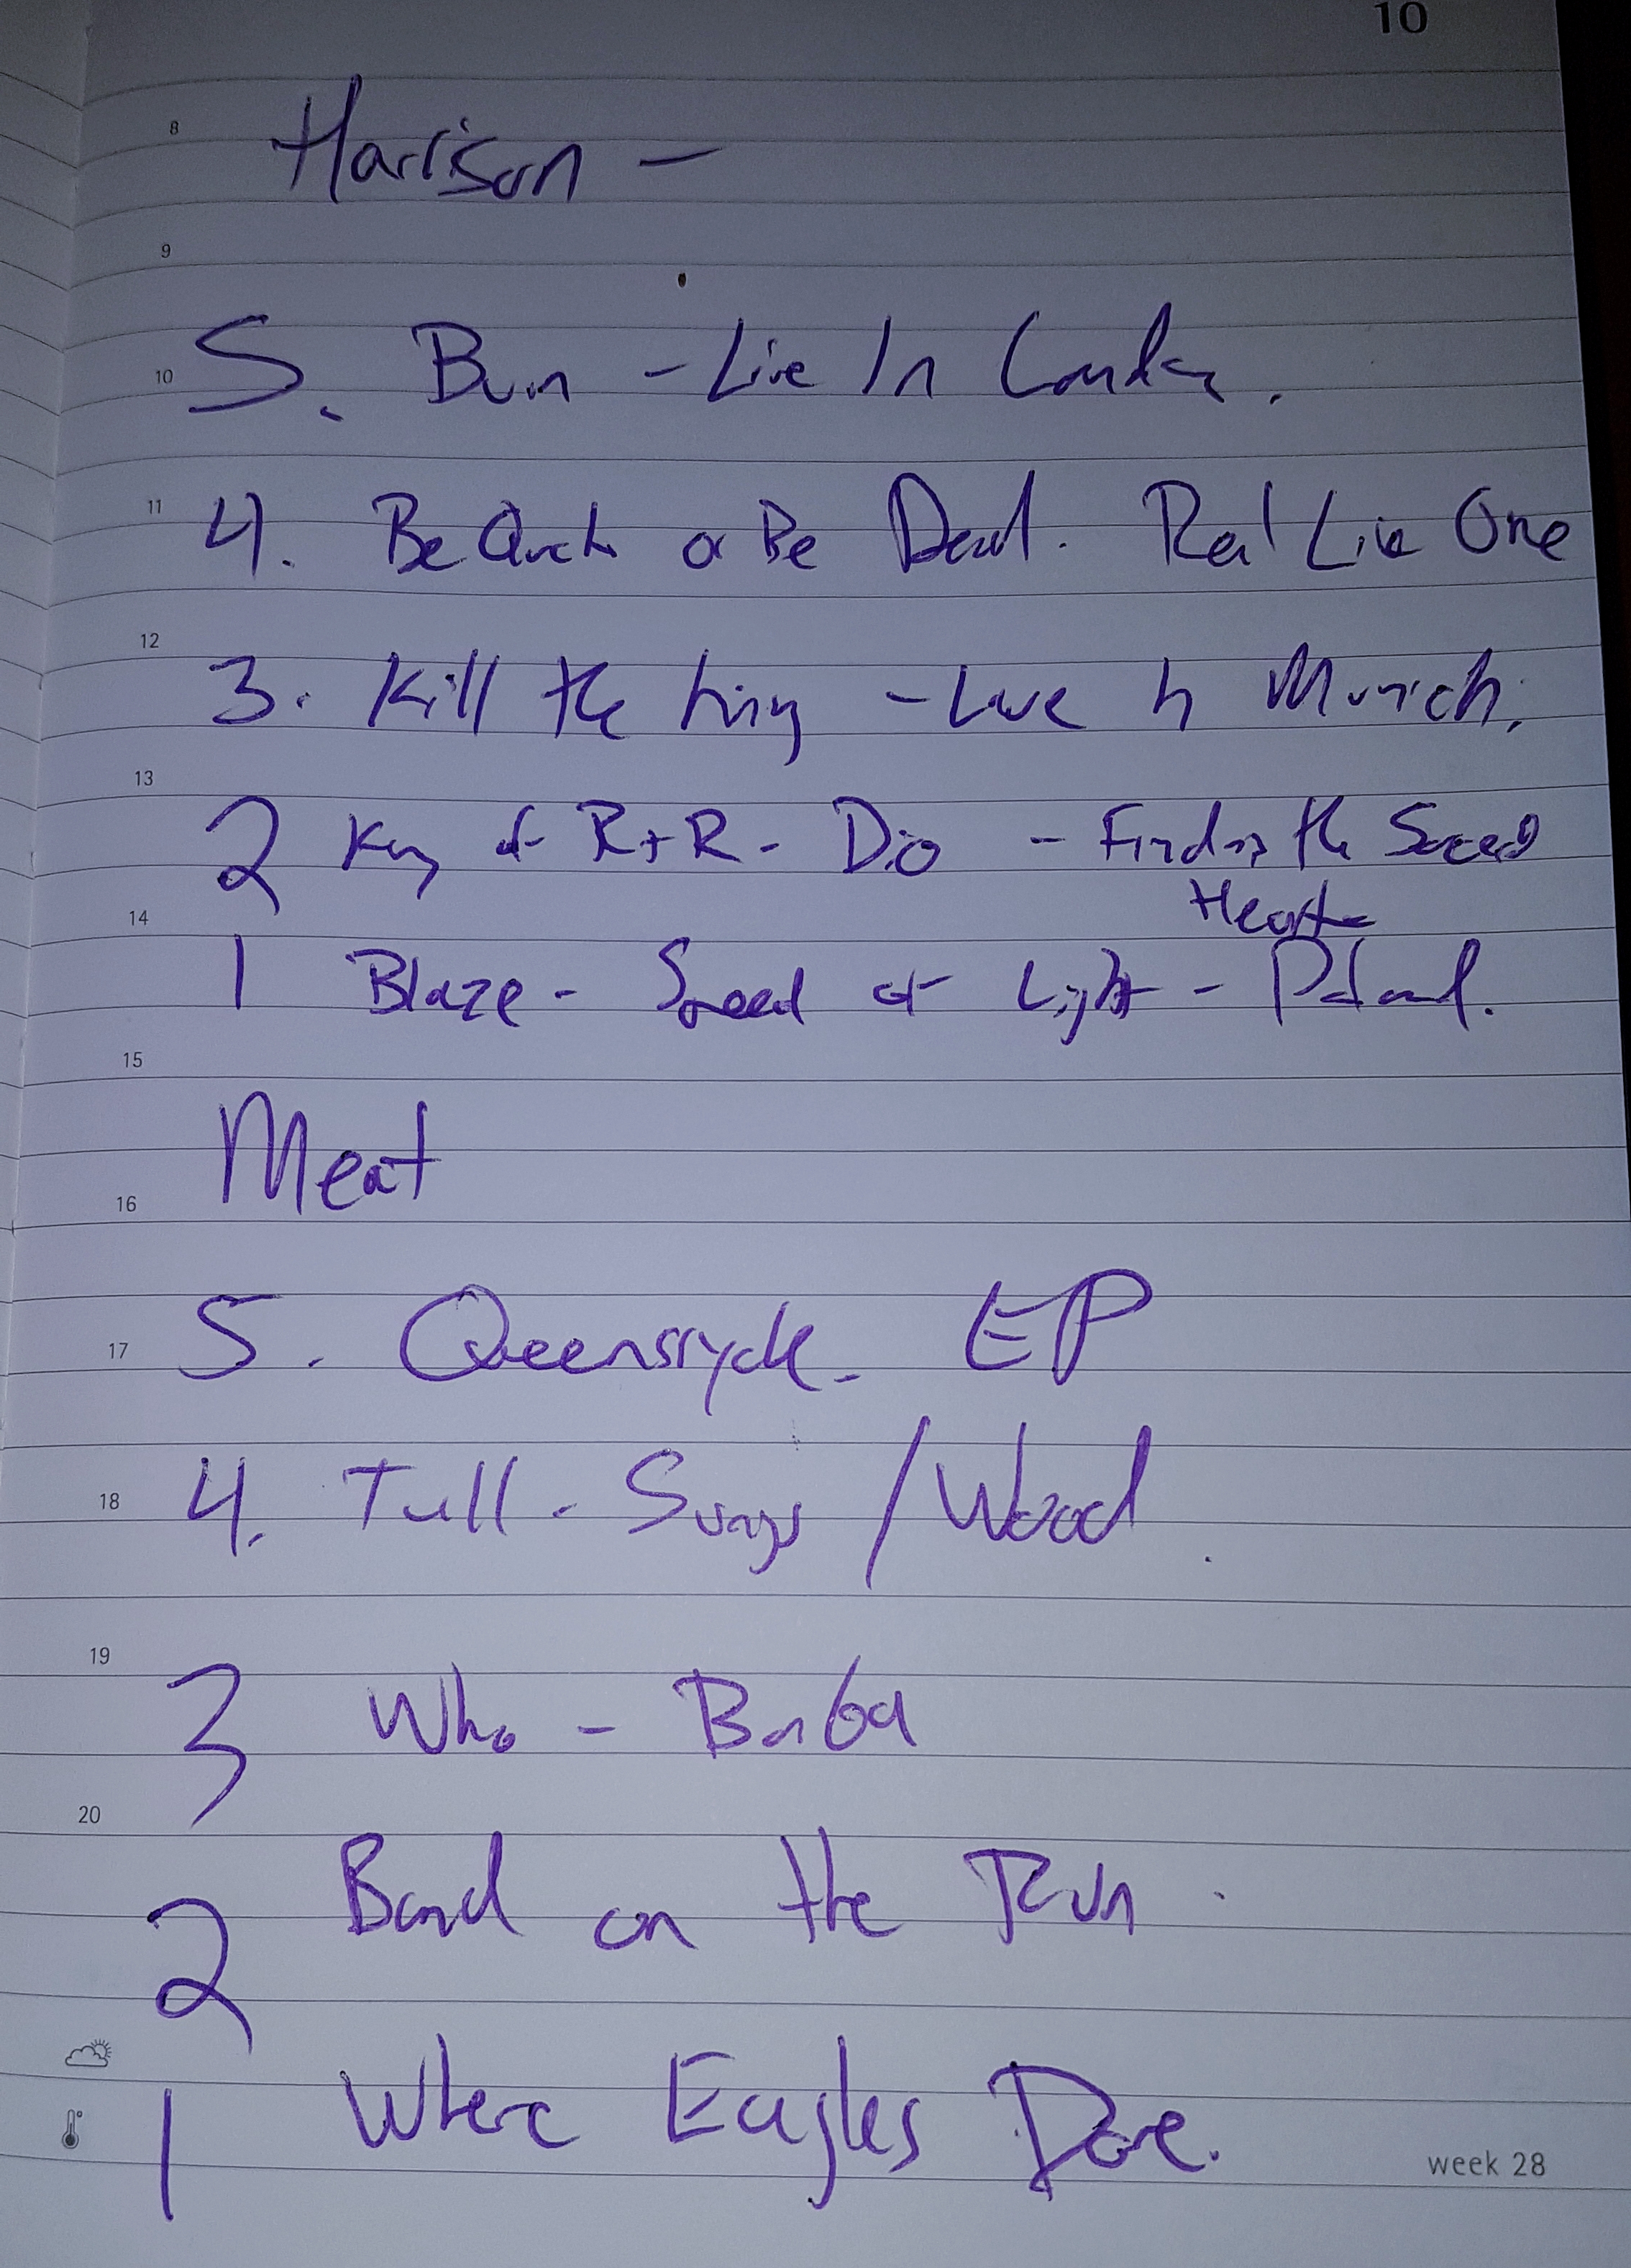 10
8 Harrison -
9
10 5. Burn - Live In London.
11 4. Be Quick or Be Dead. Real Live One
12 3. Kill the King - Live in Munich.
13 2 King of R+R - Dio - Finding the Sacred
Heart
14 1 Blaze - Speed of Light - Poland.
15
Meat
16
17 5. Queensryche - EP
18 4. Tull - Songs / Wood.
19
3 Who -
20
2 Band on the Run.
1 Where Eagles Dare.
week 28